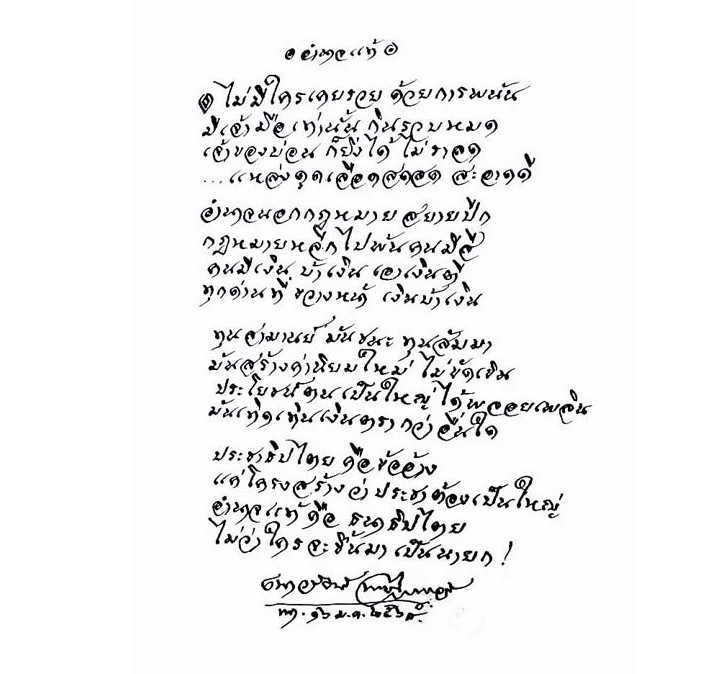 ๏ อำนาจแท้ ๏
๏ ไม่มีใครเคยรวย ด้วยการพนัน
มีเจ้ามือเท่านั้น กินรวบหมด
เจ้าของบ่อน ก็ยิ่งได้ ไม่ราลด
...แหล่งดูดเลือดสดอด สะอาดดี
อำนาจนอกกฎหมาย สยายปีก
กฎหมายหลีกไปพ้นคนมีสี
คนมีเงิน บ้าเงิน เอาเงินตี
ทุกด่านที่ ขวางหน้า เงินบ้าเงิน
ทุนสามานย์ มันชนะ ทุนสัมมา
มันสร้างค่านิยมใหม่ ไม่ขัดเขิน
ประโยชน์ตนเป็นใหญ่ ได้พลอยเพลิน
มันเทิดเทินเงินตรา กว่าอื่นใด
ประชาธิปไตย คือข้ออ้าง
แค่โครงสร้างว่า ประชาต้องเป็นใหญ่
อำนาจแท้ คือ ธนาธิปไตย
ไม่ว่าใครจะขึ้นมา เป็นนายก !
เนาวรัตน์ พงษ์ไพบูลย์
๑๖ ม.ค. ๒๕๖๘